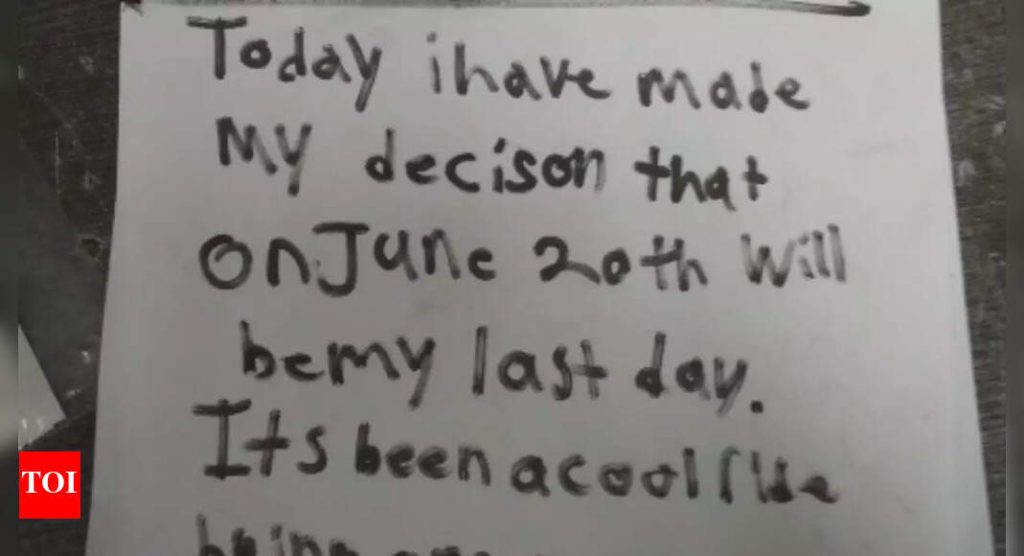 Today i have made
My decison that
on June 20th Will
be my last day.
Its been a cool ride
being
TOI